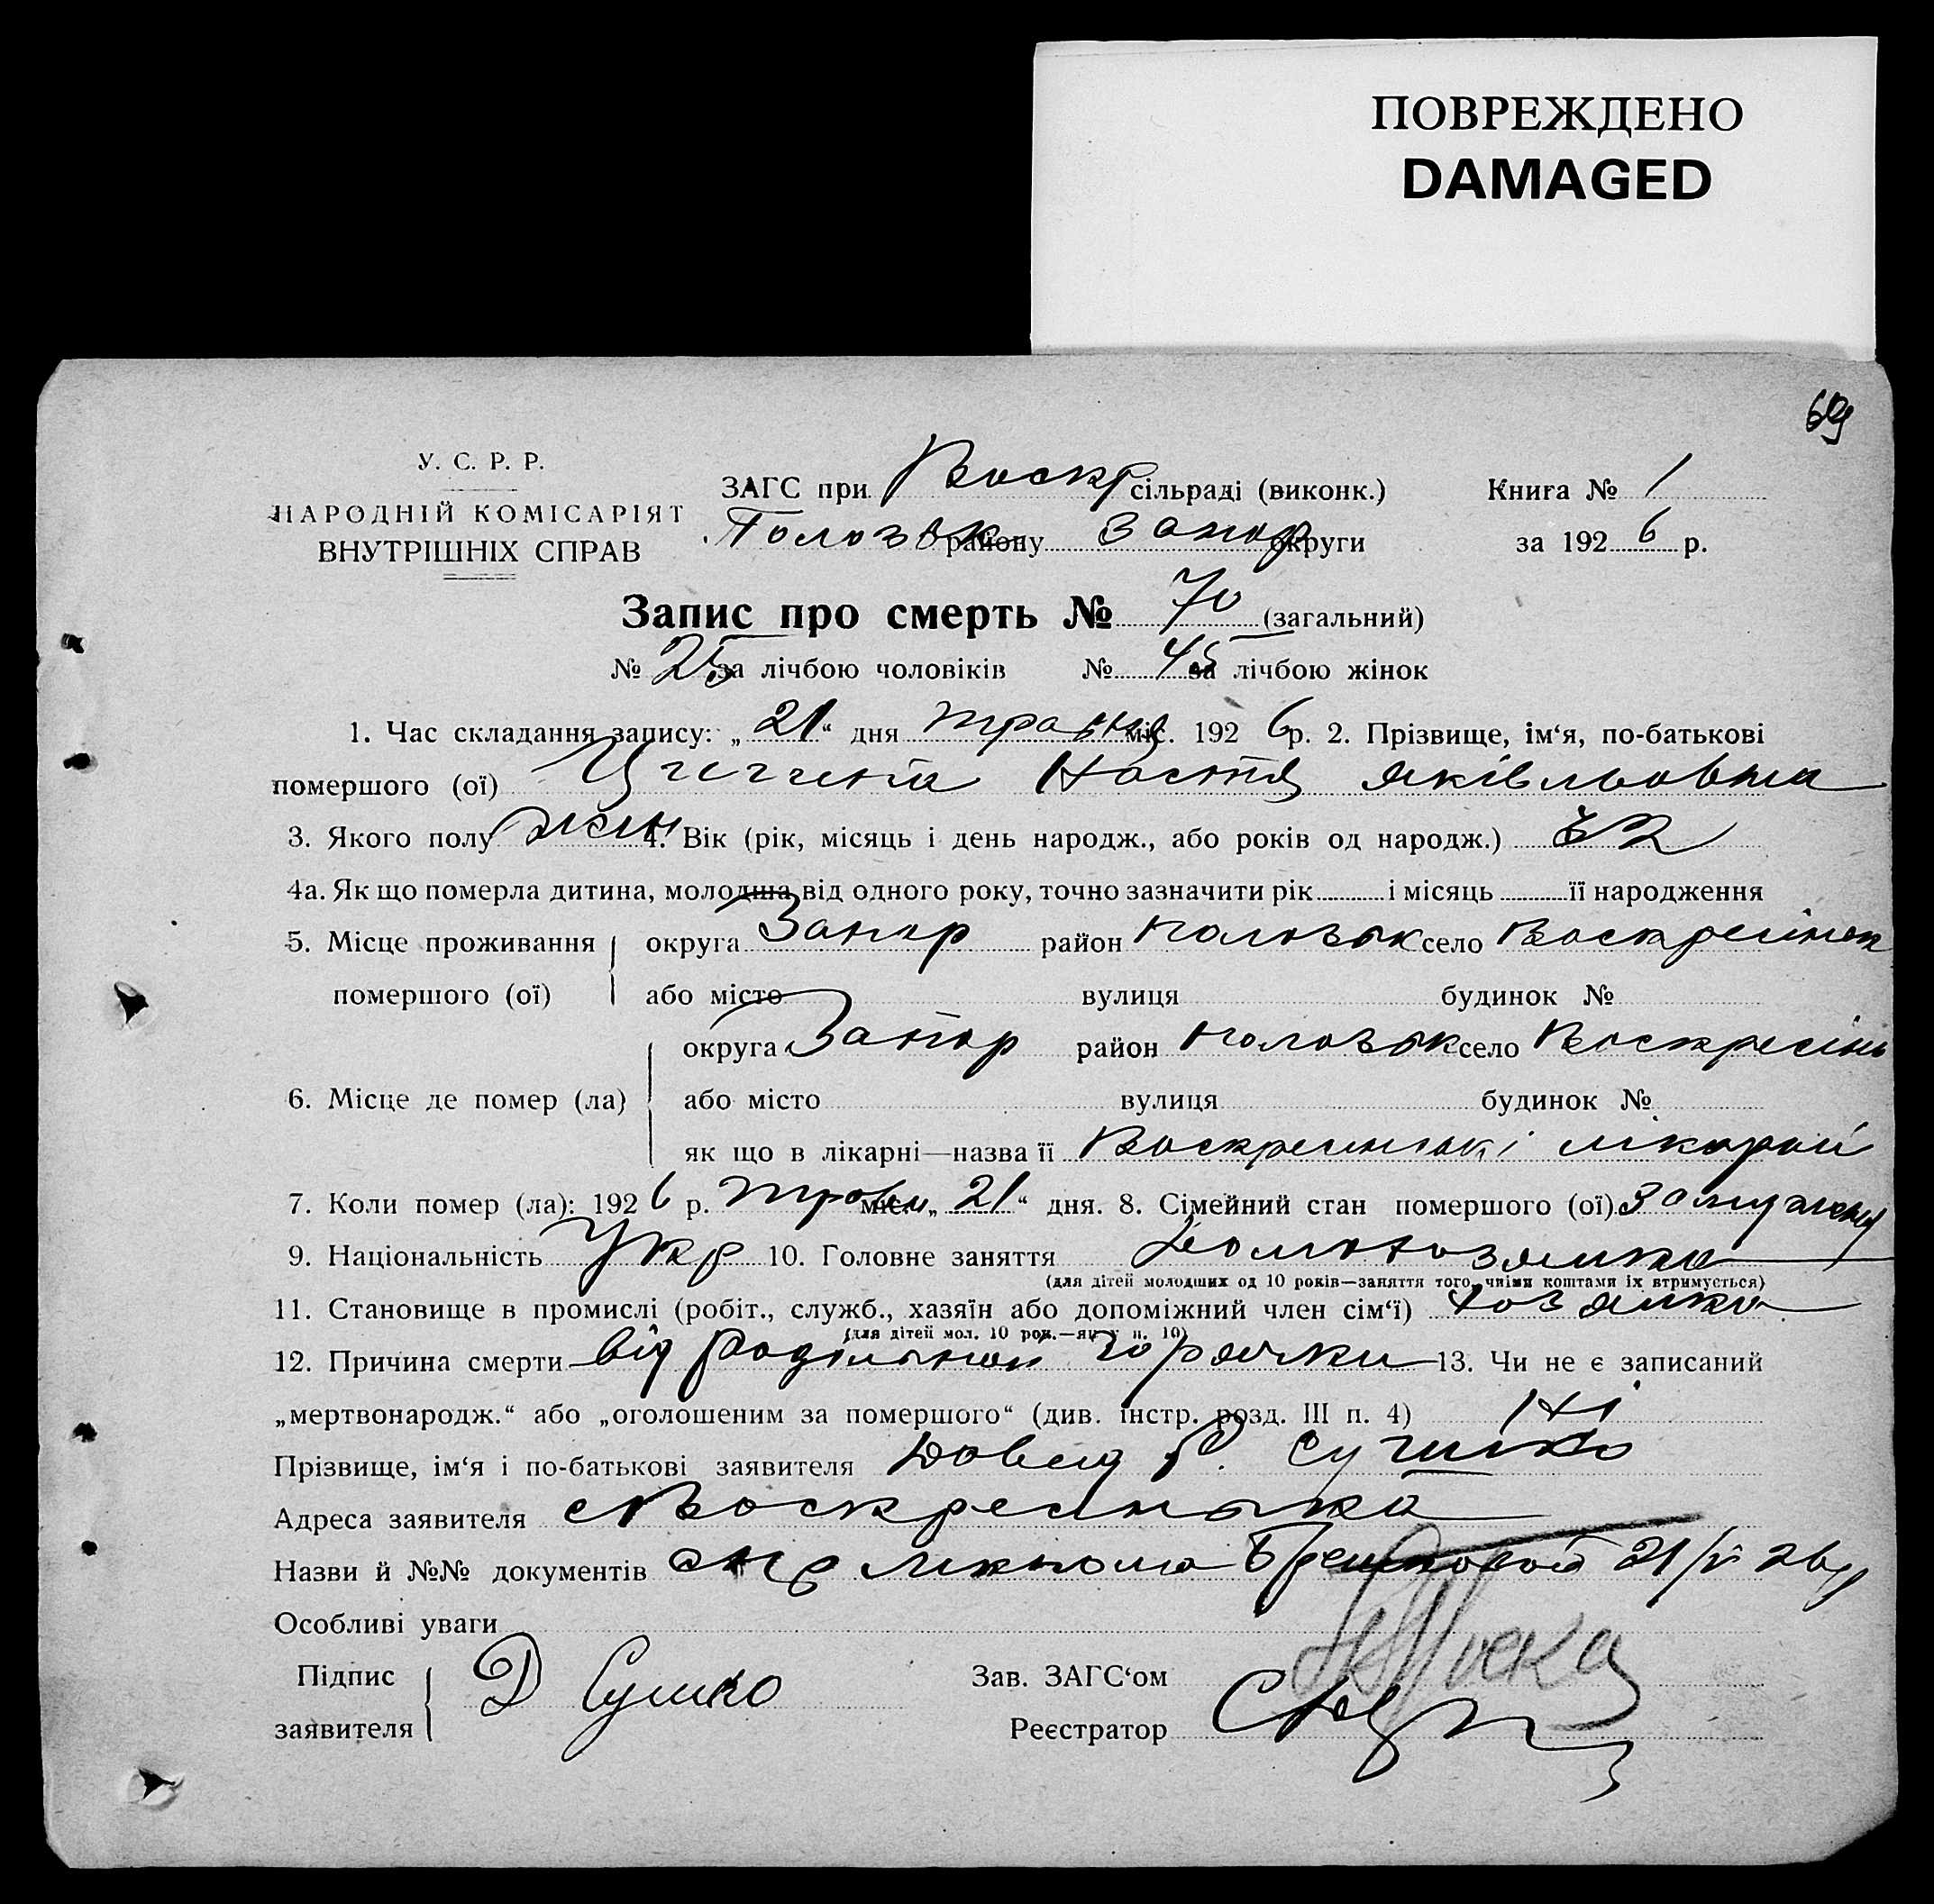 ПОВРЕЖДЕНО
DAMAGED
69
У. С. Р. Р.
НАРОДНІЙ КОМІСАРІЯТ
ВНУТРІШНІХ СПРАВ
ЗАГС при Воскр сільраді (виконк.)
району Запор округи
Книга № 1
за 1926 р.
Запис про смерть № 70 (загальний)
№ 25 за лічбою чоловіків № 45 за лічбою жінок
1. Час складання запису: „21“ дня травня міс. 1926 р. 2. Прізвище, ім‘я, по-батькові
помершого (ої) Настя Яківльовна
3. Якого полу жін 4. Вік (рік, місяць і день народж., або років од народж.)
4а. Як що померла дитина, молодша від одного року, точно зазначити рік і місяць її народження
5. Місце проживання округа Запор район село
помершого (ої) або місто вулиця будинок №
округа Запор район село
6. Місце де помер (ла) або місто вулиця будинок №
як що в лікарні—назва її
7. Коли помер (ла): 1926 р. травн міс. „21“ дня. 8. Сімейний стан помершого (ої) замужня
9. Національність Укр 10. Головне заняття домохозяйка
(для дітей молодших од 10 років—заняття того, чиїми коштами їх втримується)
11. Становище в промислі (робіт., служб., хазяїн або допоміжний член сім‘ї) хозяйка
(для дітей мол. 10 рок.—як у п. 10)
12. Причина смерти від горячки 13. Чи не є записаний
„мертвонародж.“ або „оголошеним за помершого“ (див. інстр. розд. III п. 4) Ні
Прізвище, ім‘я і по-батькові заявителя Сушко
Адреса заявителя с Воскресенька
Назви й №№ документів 21/V 26р
Особливі уваги
Підпис заявителя Д Сушко
Зав. ЗАГС‘ом
Реєстратор